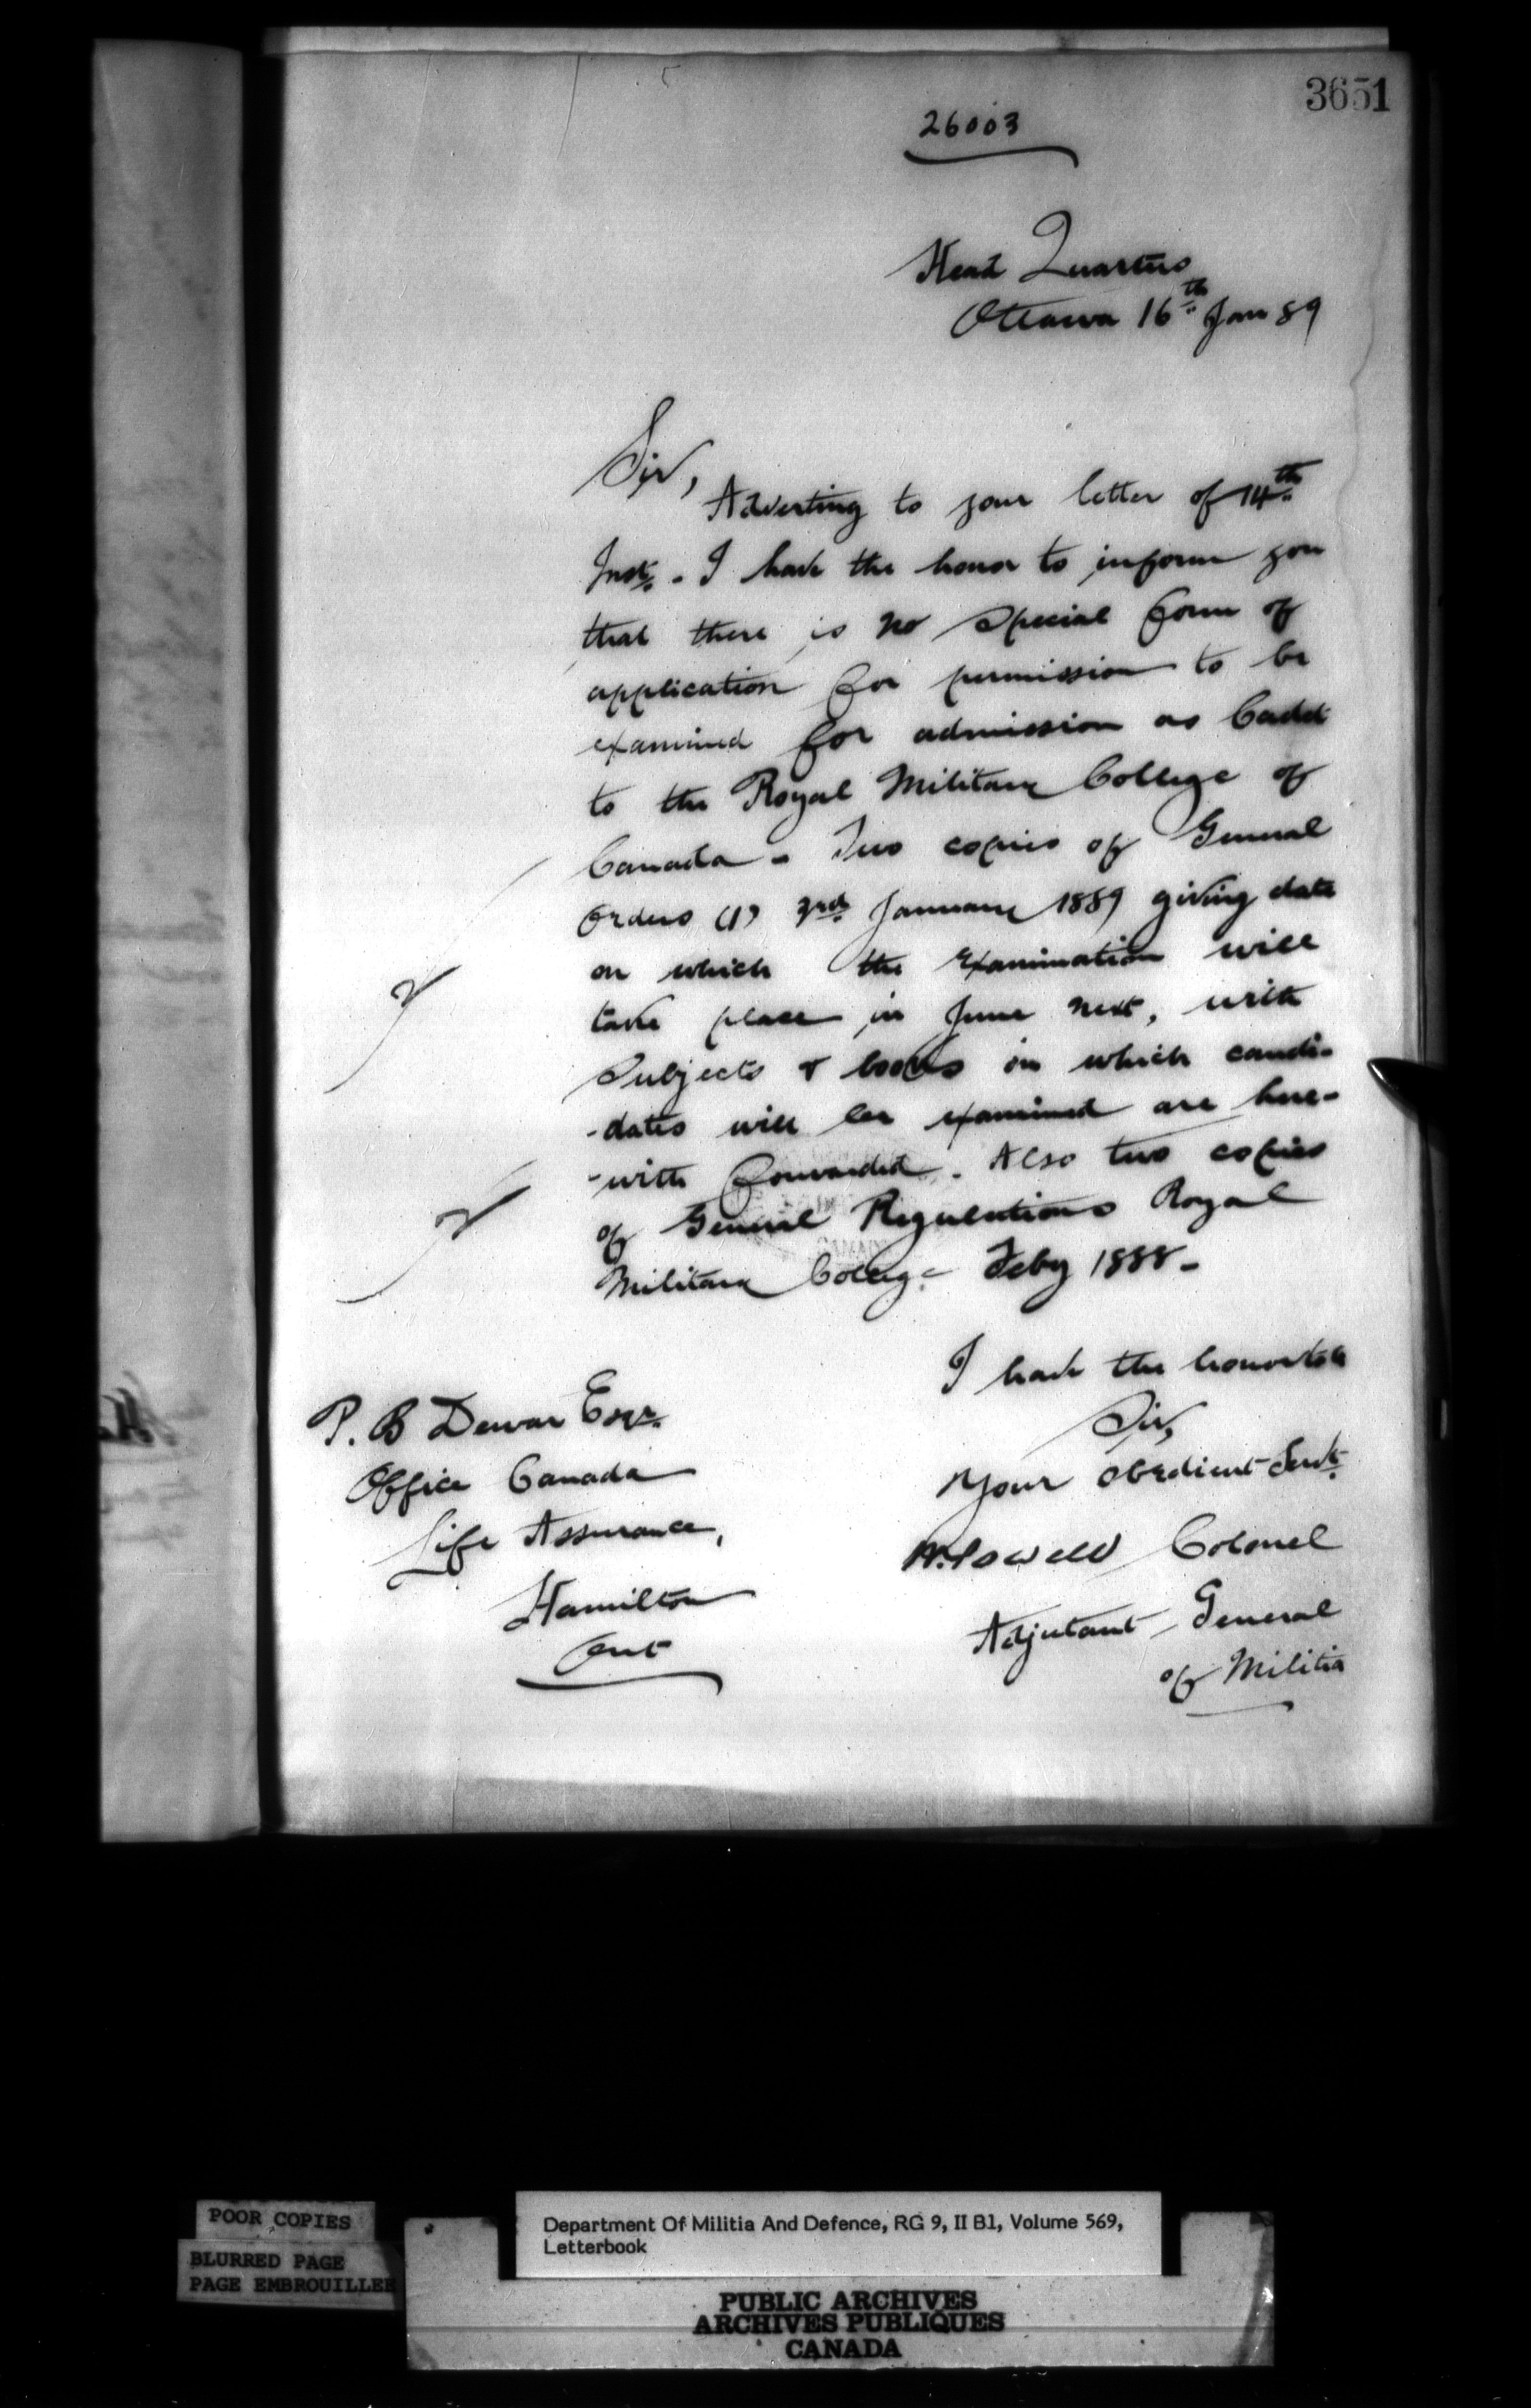 3651
26003
Head Quarters
Ottawa 16th Jan 89
Sir,
Adverting to your letter of 14th
Inst. - I have the honor to inform you
that there is no special form of
application for permission to be
examined for admission as Cadet
to the Royal Military College of
Canada - Two copies of General
Orders (1) 3rd January 1889 giving date
on which the examination will
take place in June next, with
Subjects & books in which candi-
-dates will be examined are here-
-with forwarded. Also two copies
of General Regulations Royal
Military College Feby 1888 -
I have the honor to be
Sir,
Your obedient Servt.
W. Powell Colonel
Adjutant General
of Militia
P. B Dewar Esqr.
Office Canada
Life Assurance,
Hamilton
Ont
POOR COPIES
BLURRED PAGE
PAGE EMBROUILLEE
Department Of Militia And Defence, RG 9, II B1, Volume 569,
Letterbook
PUBLIC ARCHIVES
ARCHIVES PUBLIQUES
CANADA